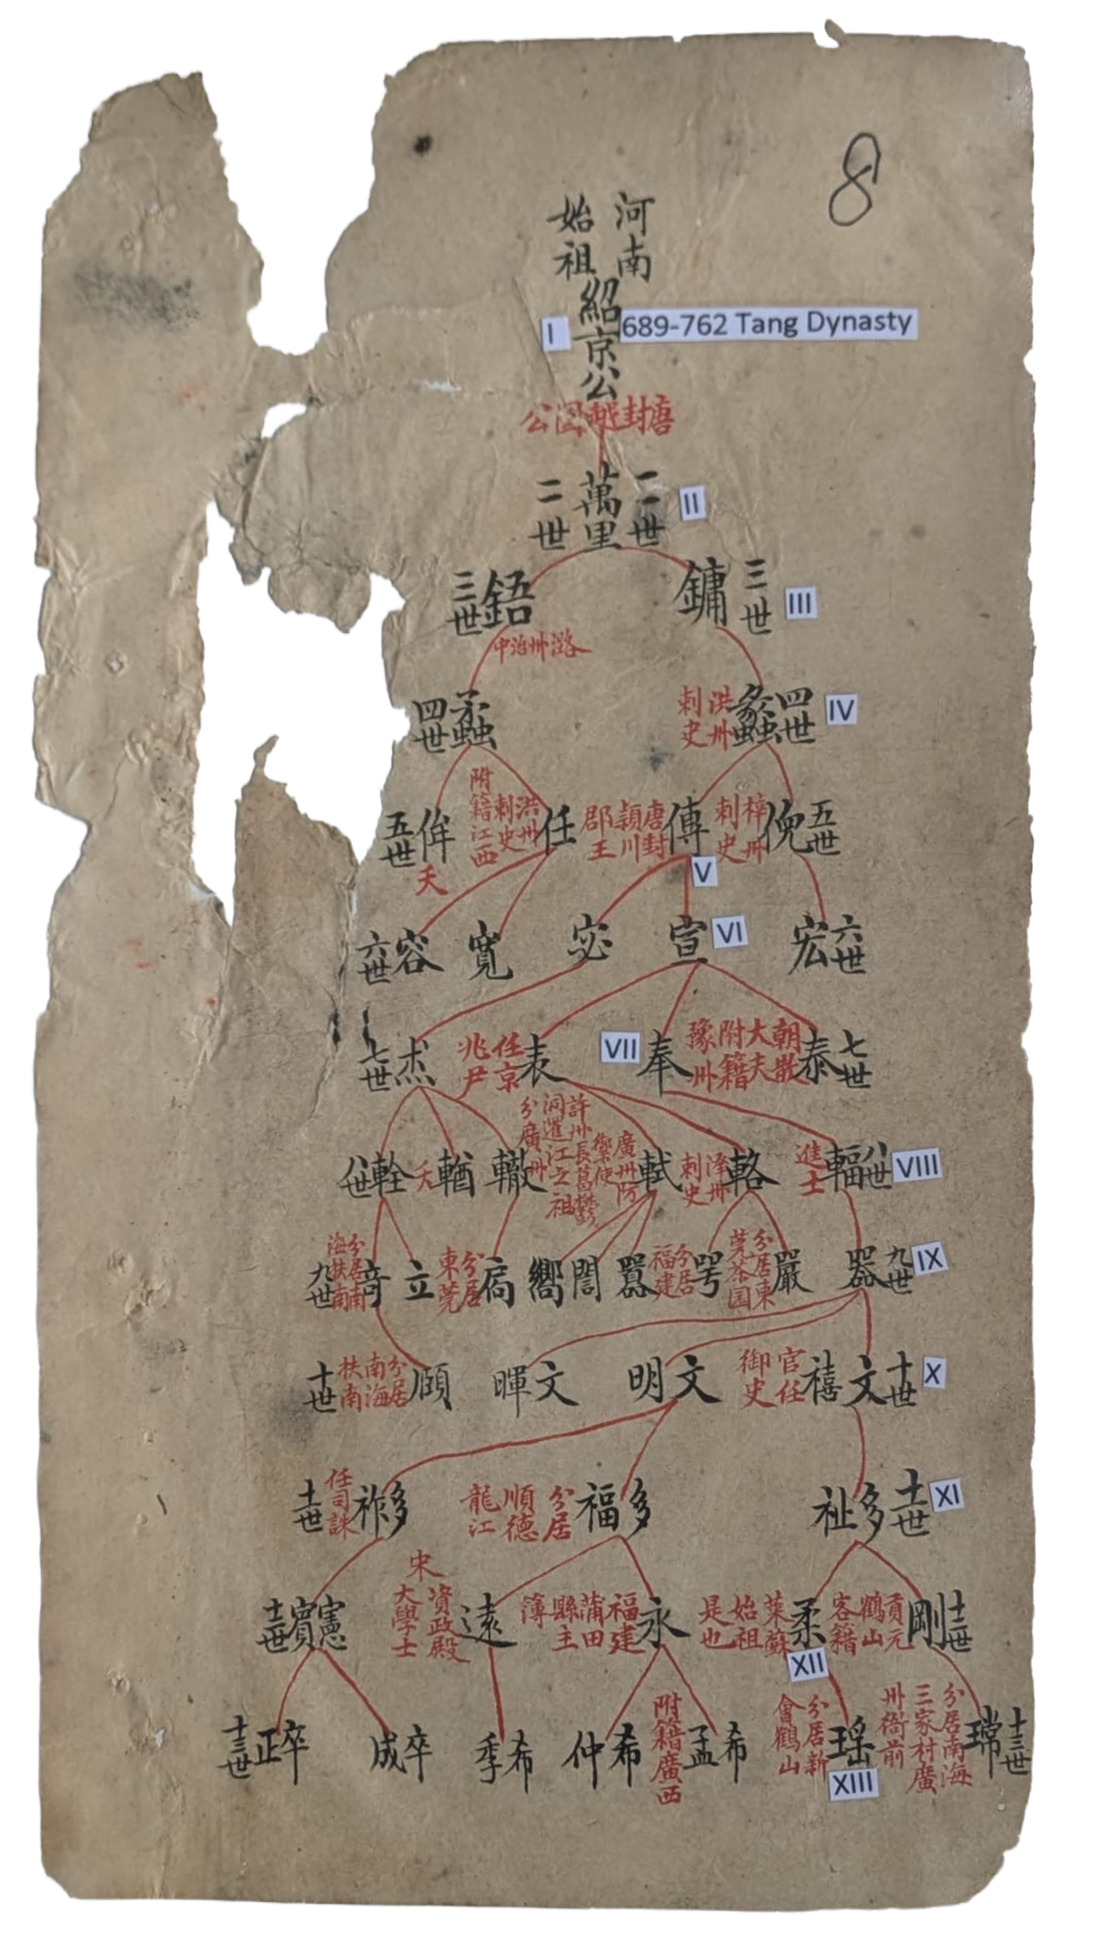 8
河南
始祖
紹京公
I
689-762 Tang Dynasty
唐封越國公
二世
萬里
二世
II
三世
鏞
III
三世
鋙
潞州治中
四世
蠡
洪州刺史
IV
四世
蝨
五世
倪
梓州刺史
傳
唐封潁川郡王
V
任
洪州刺史
附籍江西
五世
侔
夭
六世
宏
VI
宣
宓
寬
六世
容
七世
泰
朝散大夫
附籍豫州
奉
VII
表
任京兆尹
七世
杰
VIII
八世
輻
進士
輅
澤州刺史
軾
廣州防禦使
許州長葛
分廣州
轍
輶
夭
八世
輇
IX
九世
器
嚴
分居東莞茶园
咢
分居福建
嚚
誾
嚮
扃
分居東莞
立
竒
分居南海扶南
九世
X
十世
文禧
官任御史
文明
文暉
頎
分居南海扶南
十世
XI
十一世
多祉
多福
分居順德龍江
多祚
任司諫
十一世
十二世
剛
貢元
鶴山客籍
柔
萊蘇始祖是也
XII
永
福建莆田縣主簿
遠
宋資政殿大學士
憲實
十二世
十三世
璸
分居南海三家村廣州衙前
瑶
分居新會鶴山
XIII
希孟
附籍廣西
希仲
希季
卒成
卒正
十三世